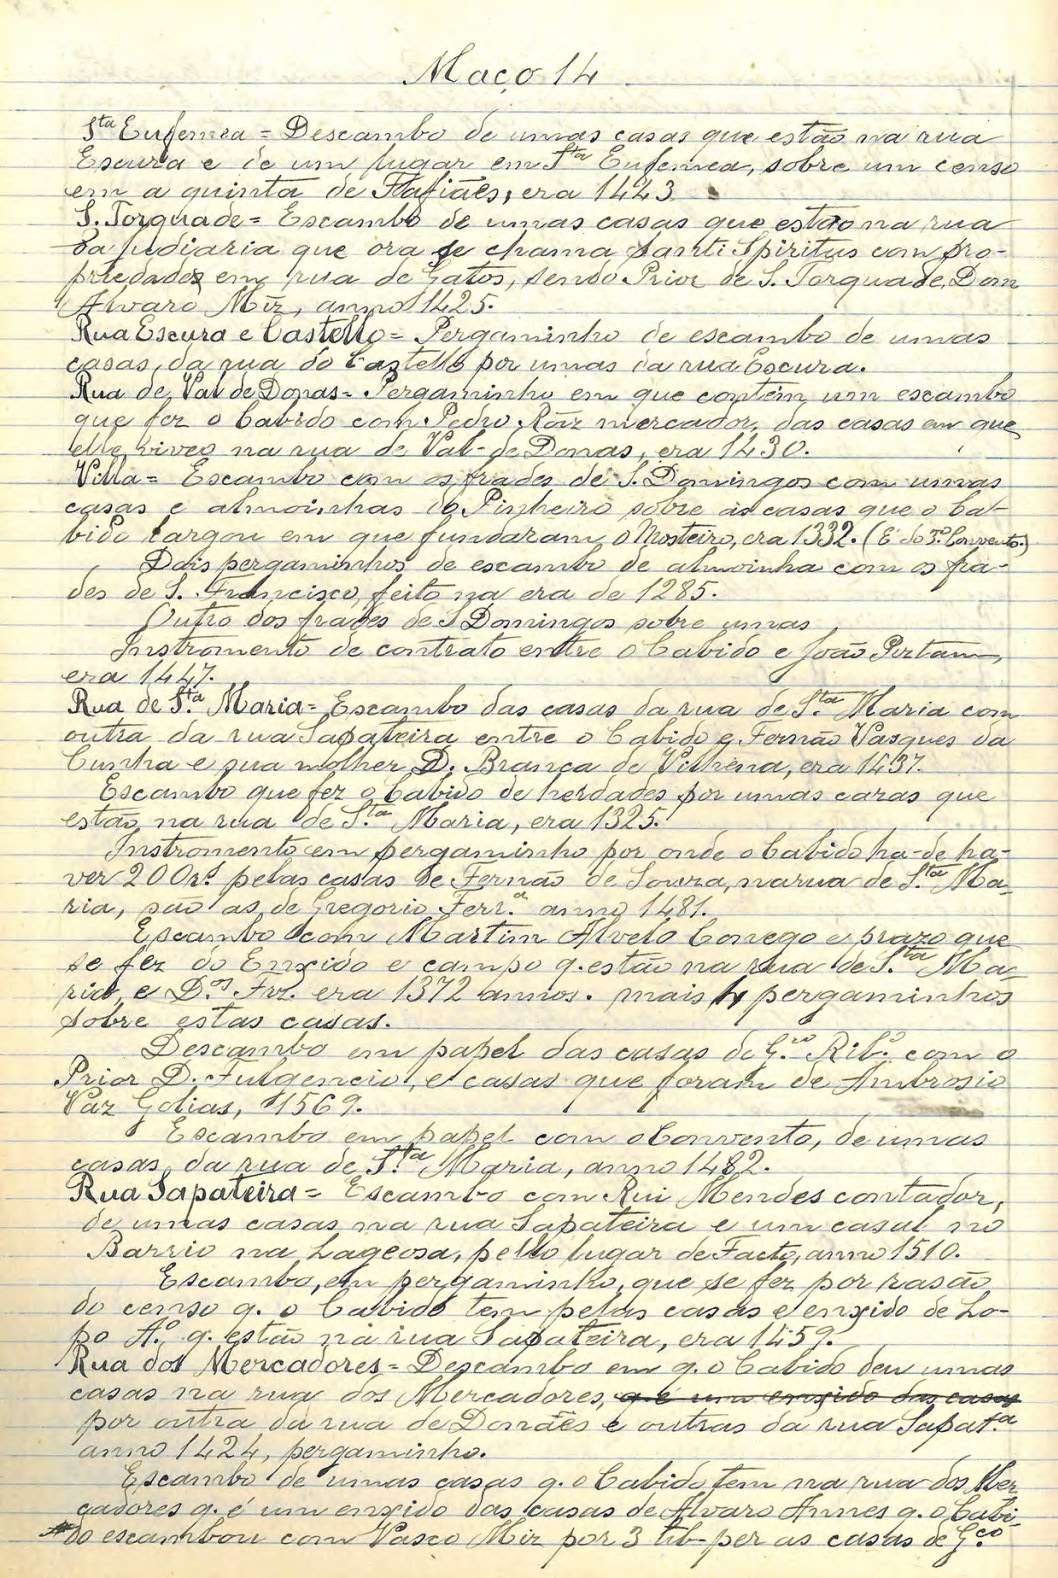 Maço 14
Sta Eufemea = Descambo de umas casas que estão na rua
Escura e de um lugar em Sta Eufemea, sobre um censo
em a quinta de Atafiães, era 1443
S. Torquade = Escambo de umas casas que estão na rua
da judiaria que ora se chama Santi Spiritus com pro-
priedades em rua de Gatos, sendo Prior de S. Torquade, Dom
Alvaro Miz, anno 1425.
Rua Escura e Castello = Pergaminho de escambo de umas
casas, da rua do Castello por umas da rua Escura.
Rua de Val de Donas = Pergaminho em que contêm um escambo
que fez o Cabido com Pedro Roiz mercador, das casas em que
elle viveo na rua de Val-de Donas, era 1430.
Villa = Escambo com os frades de S. Domingos com umas
casas e almoinhas do Pinheiro sobre as casas que o Ca-
bido largou em que fundaram o Mosteiro, era 1332. (É do 3º Convento.)
Dois pergaminhos de escambo de almoinha com os fra-
des de S. Francisco, feito na era de 1285.
Outro dos frades de S Domingos sobre umas
Instromento de contrato entre o Cabido e João
era 1447.
Rua de Sta Maria = Escambo das casas da rua de Sta Maria com
outra da rua Sapateira entre o Cabido e Fernão Vasques da
Cunha e sua molher D. Branca de Vilhena, era 1437.
Escambo que fez o Cabido de herdades por umas cazas que
estão na rua de Sta Maria, era 1325.
Instromento em pergaminho por onde o Cabido ha-de ha-
ver 200rs pelas casas de Fernão de Souza, na rua de Sta Ma-
ria, são as de Gregorio Ferr.a anno 1481.
Escambo com Martim Alvelo Conego e prazo que
se fez do Enxido e campo q. estão na rua de Sta Ma-
ria e D.os Frz. era 1372 annos. mais 4 pergaminhos
sobre estas casas.
Descambo em papel das casas de G.ro Rib.o com o
Prior D. Fulgencio, e casas que foram de Ambrosio
Vaz Golias, 1569.
Escambo em papel com o Convento, de umas
casas, da rua de Sta Maria, anno 1482.
Rua Sapateira = Escambo com Rui Mendes contador,
de umas casas na rua Sapateira e um casal no
Barrio na Lageosa, pello lugar de Facto, anno 1510.
Escambo, em pergaminho, que se fez por rasão
do censo q. o Cabido tem pelas casas e enxido de Lo-
po A.o q. estão na rua Sapateira, era 1459.
Rua dos Mercadores = Descambo em q. o Cabido deu umas
casas na rua dos Mercadores, q é um enxido das casas
por outra da rua de Donães e outras da rua Sapat.a
anno 1424, pergaminho.
Escambo de umas casas q. o Cabido tem na rua dos Mer
cadores q. é um enxido das casas de Alvaro Annes q. o Cabi-
do escambou com Vasco Miz por 3 lib per as casas de G.co